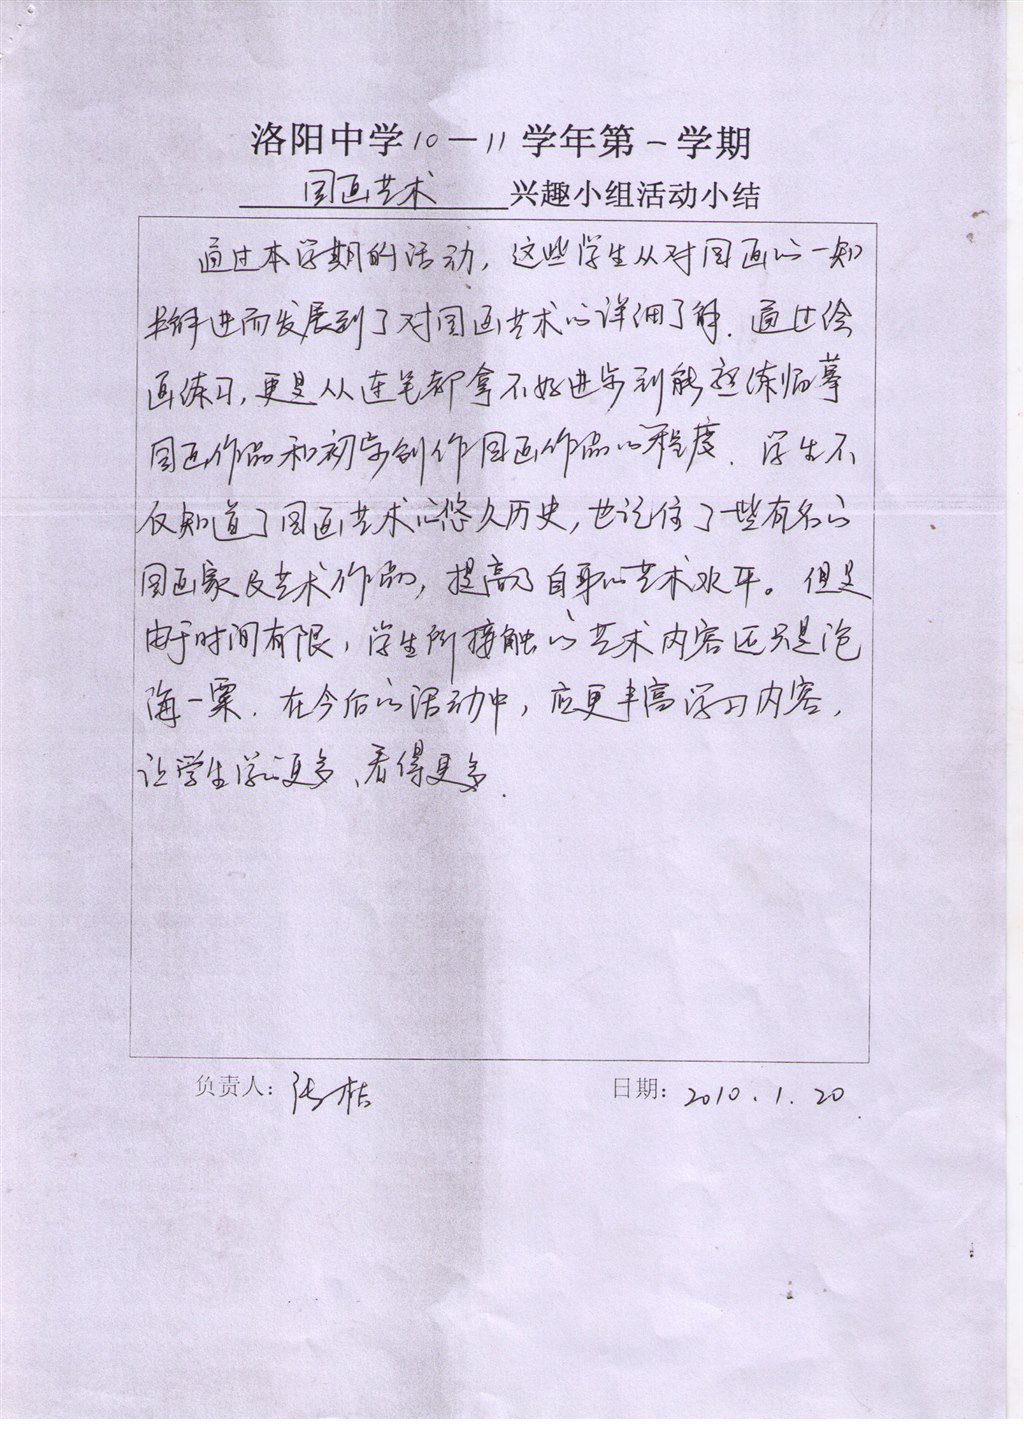 洛阳中学10—11学年第一学期
国画艺术 兴趣小组活动小结
通过本学期的活动，这些学生从对国画的一知
半解进而发展到了对国画艺术的详细了解．通过绘
画练习，更是从连笔都拿不好进步到能熟练临摹
国画作品和初步创作国画作品的程度．学生不
仅知道了国画艺术的悠久历史，也记住了一些有名的
国画家及艺术作品，提高了自身的艺术水平。但是
由于时间有限，学生所接触的艺术内容还只是沧
海一粟．在今后的活动中，应更丰富学习内容，
让学生学的更多、看得更多．
负责人：张 日期：2010.1.20